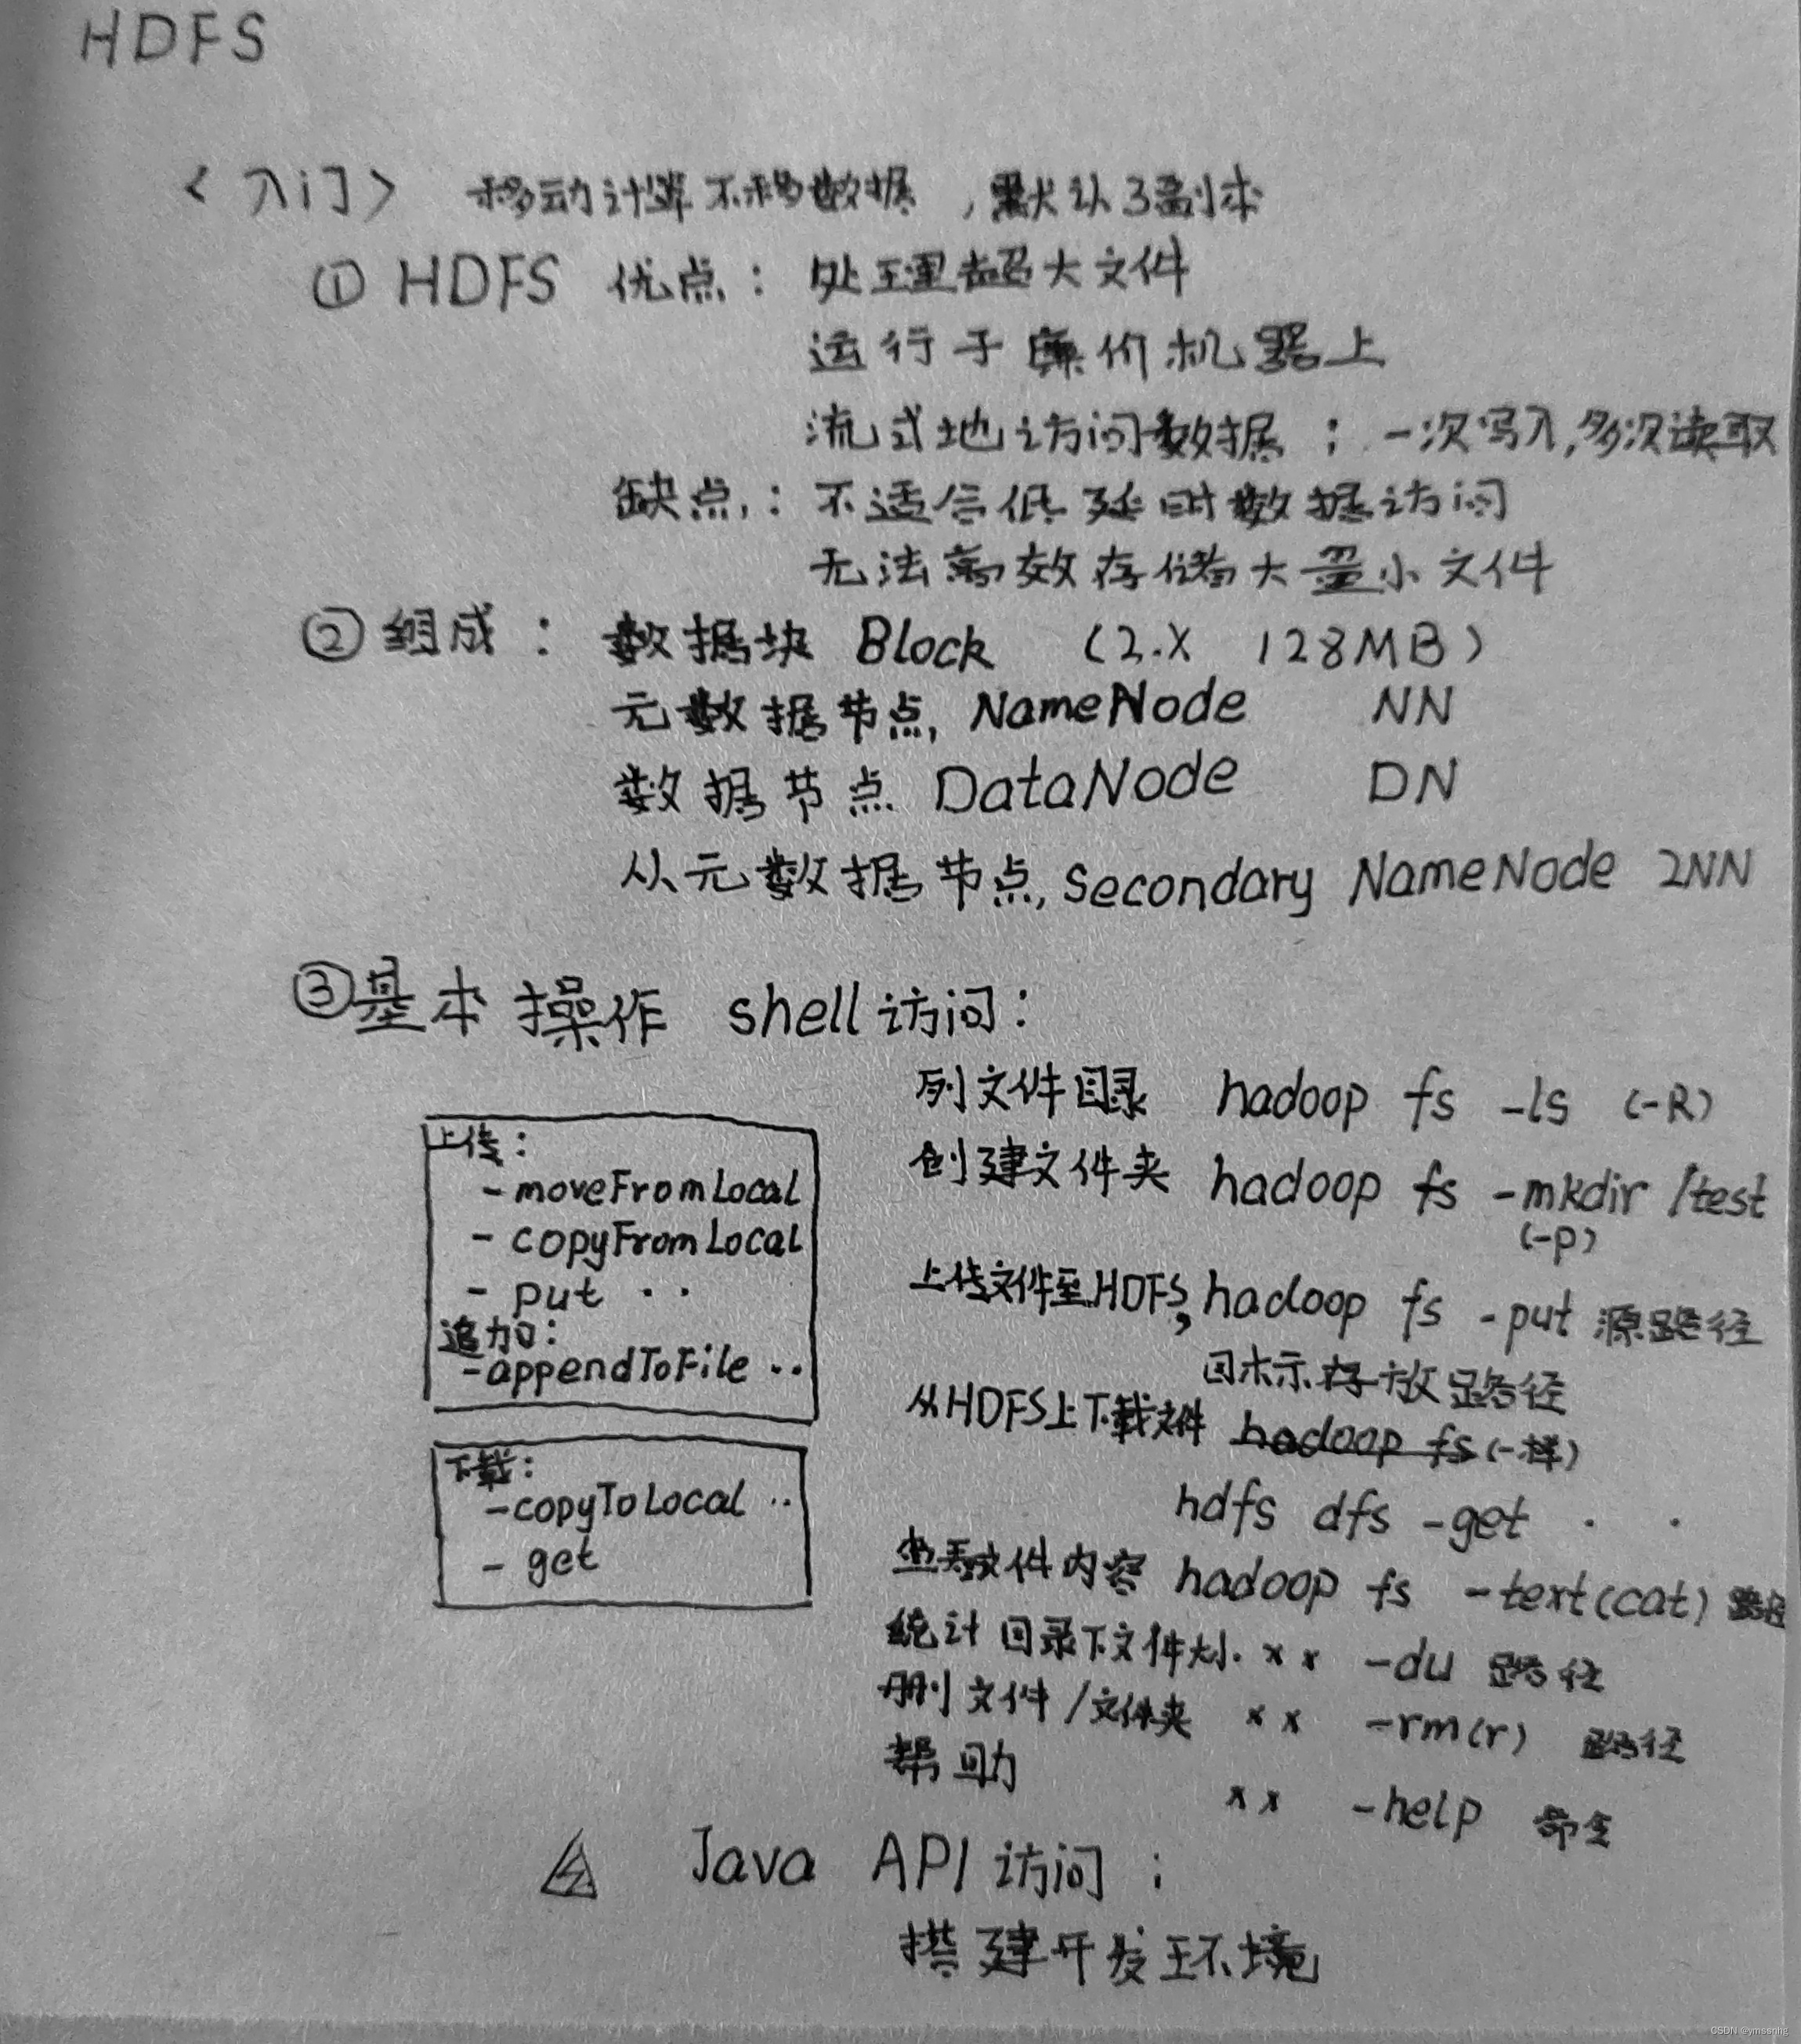 HDFS
<入门> 移动计算不移数据，默认3副本
① HDFS 优点：处理超大文件
运行于廉价机器上
流式地访问数据；一次写入,多次读取
缺点：不适合低延时数据访问
无法高效存储大量小文件
② 组成：数据块 Block (2.X 128MB)
元数据节点 NameNode NN
数据节点 DataNode DN
从元数据节点 Secondary NameNode 2NN
③ 基本操作 shell访问：
列文件目录 hadoop fs -ls (-R)
创建文件夹 hadoop fs -mkdir /test
(-p)
上传文件至HDFS, hadoop fs -put 源路径
目标存放路径
从HDFS上下载文件 hadoop fs (一样)
hdfs dfs -get · ·
查看文件内容 hadoop fs -text(cat) 路径
统计目录下文件大小 x x -du 路径
删文件/文件夹 x x -rm(r) 路径
帮助 x x -help 命令
上传：
-moveFromLocal
- copyFromLocal
- put ··
追加：
-appendToFile ··
下载：
-copyToLocal ··
- get
Java API 访问：
搭建开发环境
CSDN @ymssnhg